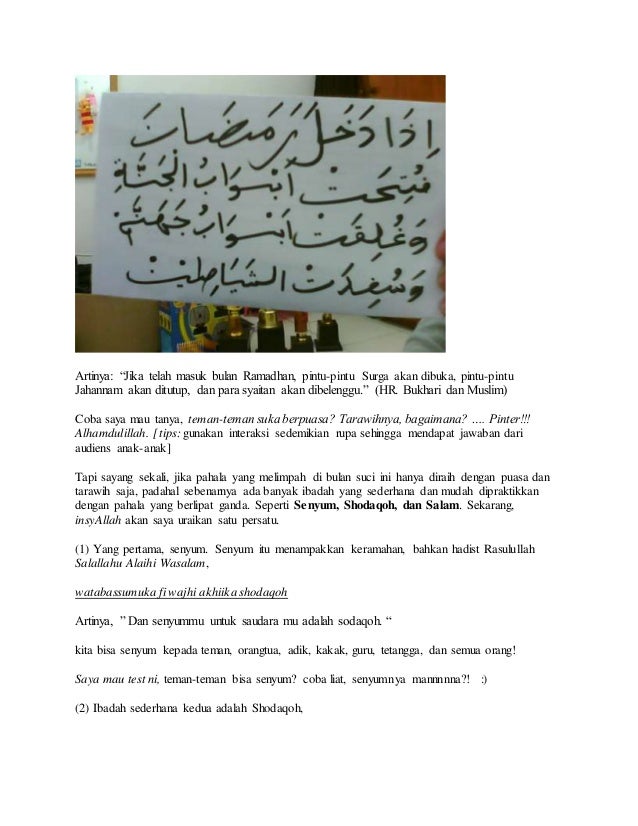 إِذَا دَخَلَ رَمَضَانَ
فُتِحَتْ أَبْوَابُ الْجَنَّةِ
وَغُلِقَتْ أَبْوَابُ جَهَنَّمَ
وَسُفِدَتْ الشَّيَاطِيْنْ
Artinya: “Jika telah masuk bulan Ramadhan, pintu-pintu Surga akan dibuka, pintu-pintu
Jahannam akan ditutup, dan para syaitan akan dibelenggu.” (HR. Bukhari dan Muslim)
Coba saya mau tanya, teman-teman suka berpuasa? Tarawihnya, bagaimana? .... Pinter!!!
Alhamdulillah. [ tips: gunakan interaksi sedemikian rupa sehingga mendapat jawaban dari
audiens anak-anak]
Tapi sayang sekali, jika pahala yang melimpah di bulan suci ini hanya diraih dengan puasa dan
tarawih saja, padahal sebenarnya ada banyak ibadah yang sederhana dan mudah dipraktikkan
dengan pahala yang berlipat ganda. Seperti Senyum, Shodaqoh, dan Salam. Sekarang,
insyAllah akan saya uraikan satu persatu.
(1) Yang pertama, senyum. Senyum itu menampakkan keramahan, bahkan hadist Rasulullah
Salallahu Alaihi Wasalam,
watabassumuka fi wajhi akhiika shodaqoh
Artinya, ” Dan senyummu untuk saudara mu adalah sodaqoh. “
kita bisa senyum kepada teman, orangtua, adik, kakak, guru, tetangga, dan semua orang!
Saya mau test ni, teman-teman bisa senyum? coba liat, senyumnya mannnnna?! :)
(2) Ibadah sederhana kedua adalah Shodaqoh,